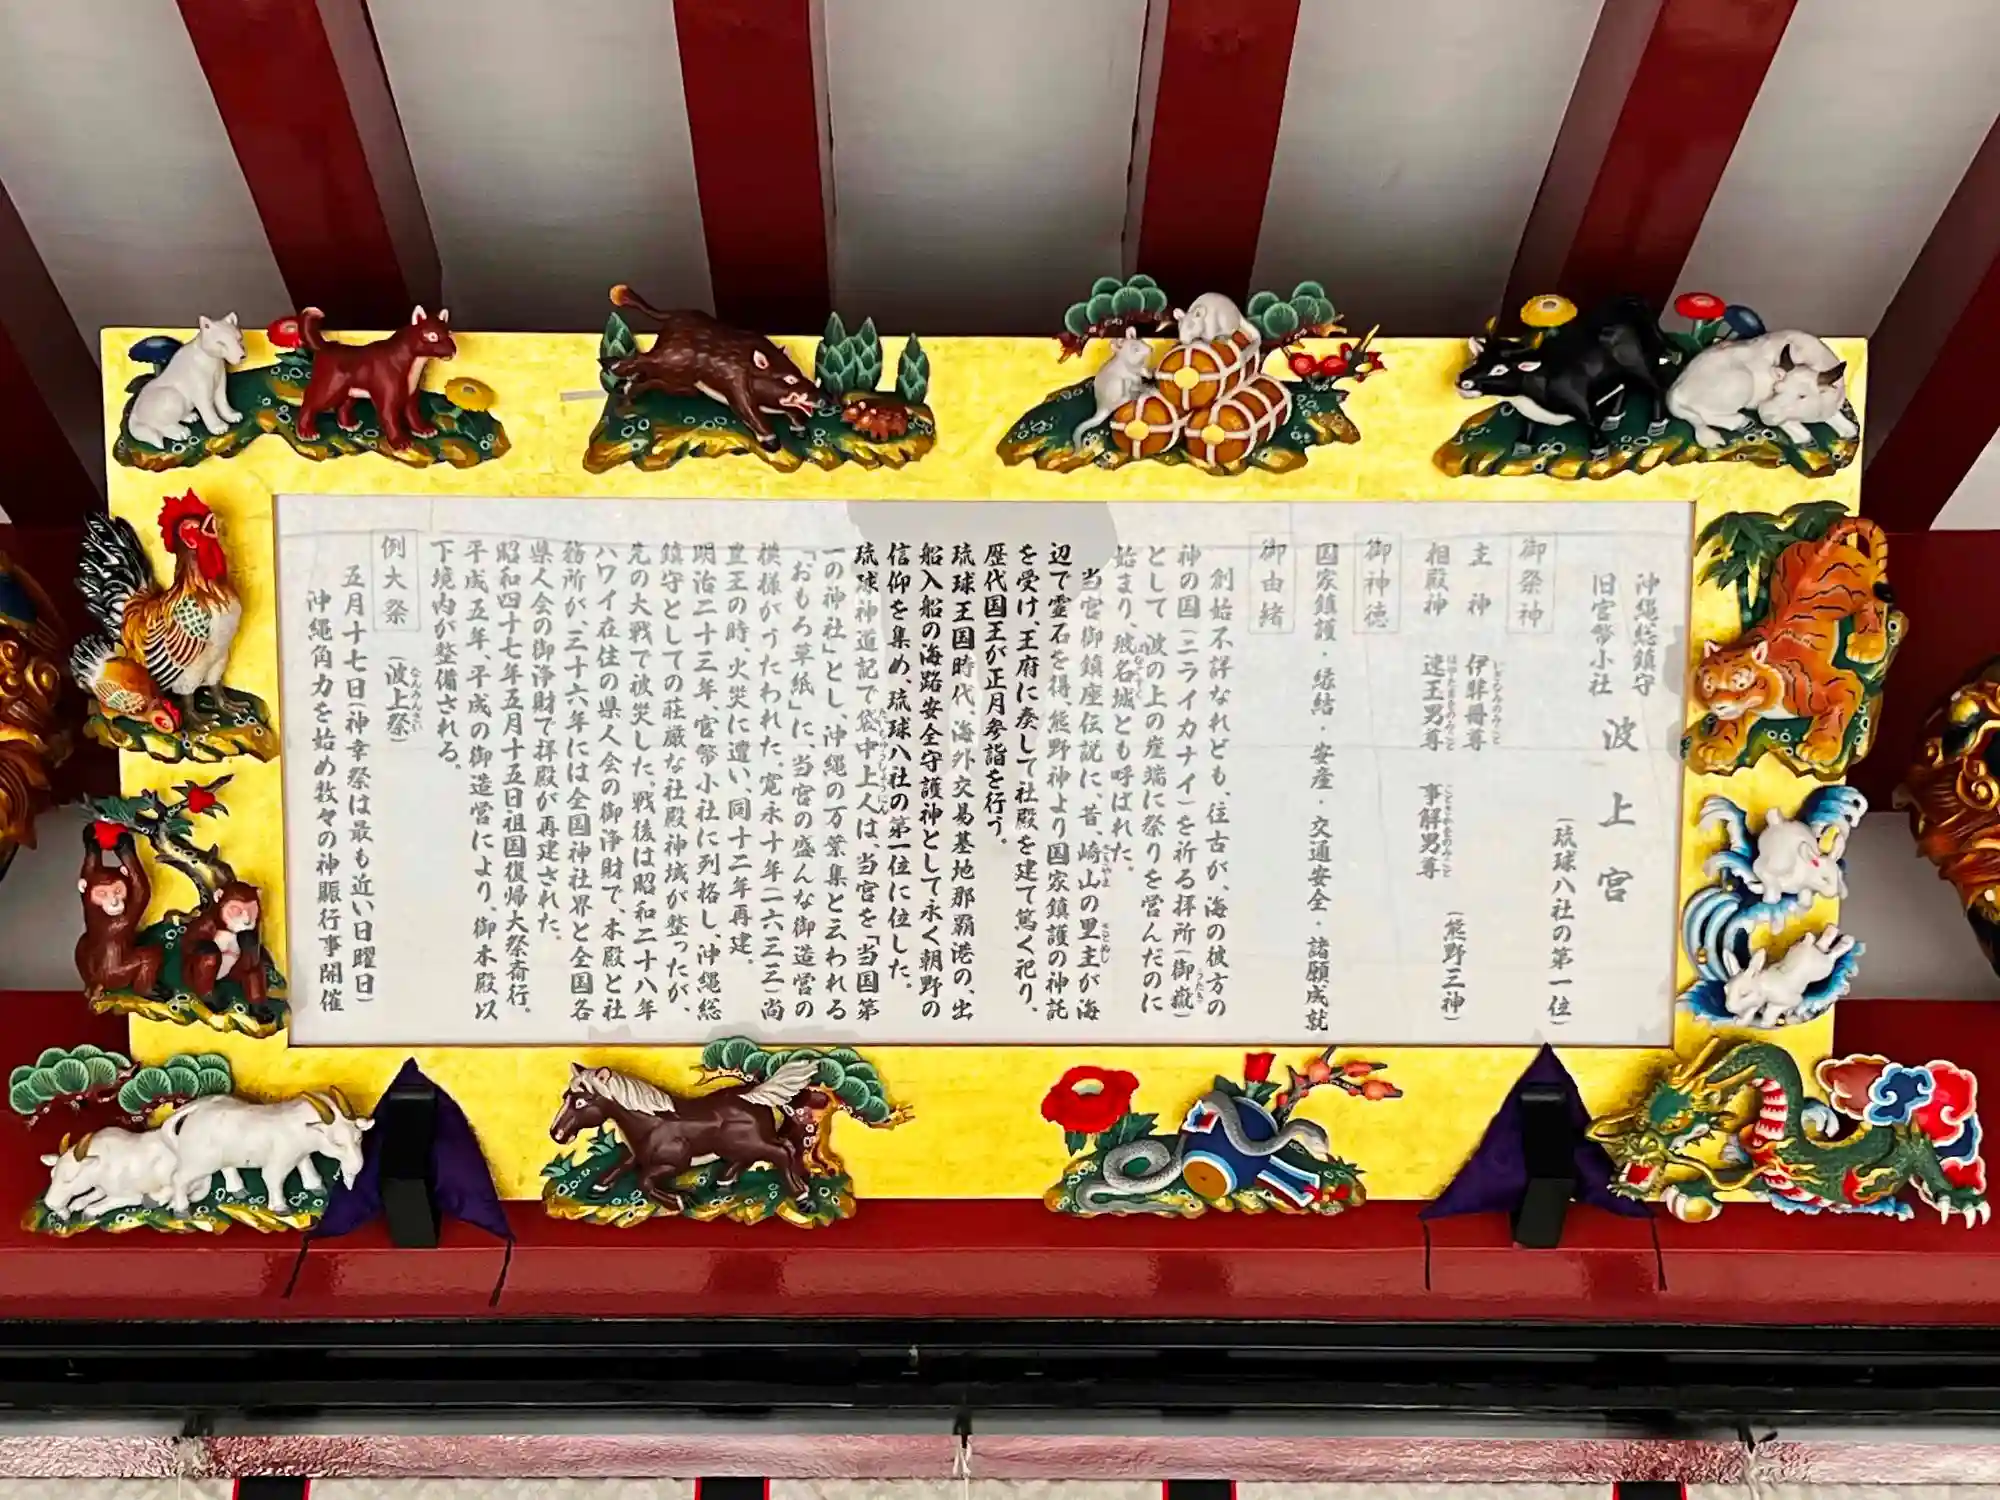 沖縄総鎮守
旧官幣小社
波上宮
(琉球八社の第一位)
御祭神
主神 伊弉冊尊
いざなみのみこと
相殿神 速玉男尊 事解男尊
はやたまをのみこと ことさかをのみこと
(熊野三神)
御神徳
国家鎮護・縁結・安産・交通安全・諸願成就
御由緒
創始不詳なれども、往古が、海の彼方の
神の国(ニライカナイ)を祈る拝所(御嶽)
うたき
として、波の上の崖端に祭りを営んだのに
始まり、玻名城とも呼ばれた。
はなぐすく
当宮御鎮座伝説に、昔、崎山の里主が海
さきやま さとぬし
辺で霊石を得、熊野神より国家鎮護の神託
を受け、王府に奏して社殿を建て篤く祀り、
歴代国王が正月参詣を行う。
琉球王国時代、海外交易基地那覇港の、出
船入船の海路安全守護神として永く朝野の
信仰を集め、琉球八社の第一位に位した。
琉球神道記で袋中上人は、当宮を「当国第
たいちゅうしょうにん
一の神社」とし、沖縄の万葉集と云われる
「おもろ草紙」に、当宮の盛んな御造営の
模様がうたわれた。寛永十年一六三三尚
豊王の時、火災に遭い、同十二年再建。
明治二十三年、官幣小社に列格し、沖縄総
鎮守としての荘厳な社殿神域が整ったが、
先の大戦で被災した。戦後は昭和二十八年
ハワイ在住の県人会の御浄財で、本殿と社
務所が、三十六年には全国神社界と全国各
県人会の御浄財で拝殿が再建された。
昭和四十七年五月十五日祖国復帰大祭斎行。
平成五年、平成の御造営により、御本殿以
下境内が整備される。
例大祭 (波上祭)
なんみんさい
五月十七日(神幸祭は最も近い日曜日)
沖縄角力を始め数々の神賑行事開催